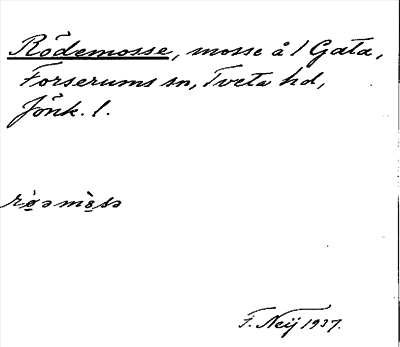 Rödemosse, mosse å / Gata,
Forserums sn, Tveta hd,
Jönk. l.
F. Neij 1937.